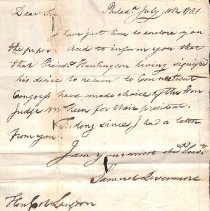 Dear Sir Philada July 10th 1781
I have just time to enclose you
the paper And to inform you that
that Presidt Huntington having signified
his desire to return to Connecticut
Congress have made choice of the Hon
Judge McKean for their president.
long since I had a letter
from you
I am
Samuel Livermore
Honl Langdon